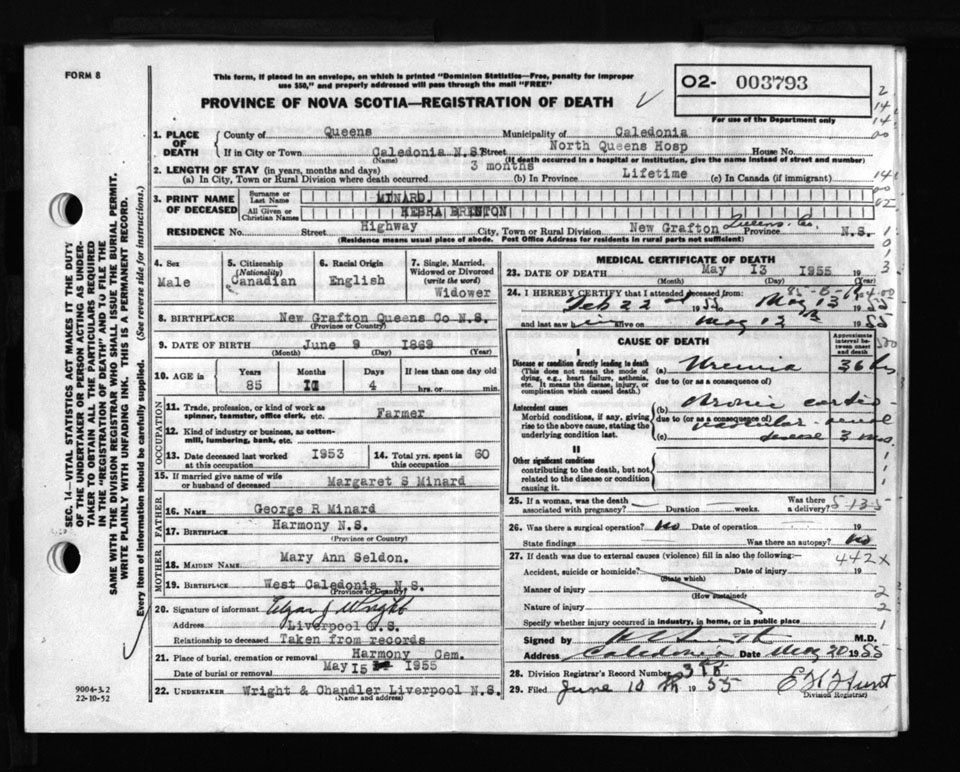 FORM 8
This form, if placed in an envelope, on which is printed "Dominion Statistics—Free, penalty for improper
use $50," and properly addressed will pass through the mail "FREE"
PROVINCE OF NOVA SCOTIA—REGISTRATION OF DEATH
O2- 003793
For use of the Department only
1. PLACE OF DEATH
County of Queens Municipality of Caledonia
North Queens Hosp
If in City or Town Caledonia N.S. Street House No.
(Name) (If death occurred in a hospital or institution, give the name instead of street and number)
2. LENGTH OF STAY (in years, months and days)
3 months
(a) In City, Town or Rural Division where death occurred (b) In Province Lifetime (c) In Canada (if immigrant)
3. PRINT NAME OF DECEASED
Surname or Last Name MINARD.
All Given or Christian Names HEBRA BRINTON
RESIDENCE No. Street Highway City, Town or Rural Division New Grafton Queens. Co. Province N.S.
(Residence means usual place of abode. Post Office Address for residents in rural parts not sufficient)
4. Sex
Male
5. Citizenship
(Nationality)
Canadian
6. Racial Origin
English
7. Single, Married,
Widowed or Divorced
(write the word)
Widower
8. BIRTHPLACE New Grafton Queens Co N.S.
(Province or Country)
9. DATE OF BIRTH June 9 1869
(Month) (Day) (Year)
10. AGE in
Years Months Days If less than one day old
85 11 4 hrs. or min.
OCCUPATION
11. Trade, profession, or kind of work as
spinner, teamster, office clerk, etc. Farmer
12. Kind of industry or business, as cotton-
mill, lumbering, bank, etc.
13. Date deceased last worked
at this occupation 1953
14. Total yrs. spent in
this occupation 60
15. If married give name of wife
or husband of deceased Margaret S Minard
FATHER
16. NAME George R Minard
17. BIRTHPLACE Harmony N.S.
(Province or Country)
MOTHER
18. MAIDEN NAME Mary Ann Seldon.
19. BIRTHPLACE West Caledonia N.S.
(Province or Country)
20. Signature of informant Elgar J Wright
Address Liverpool N.S.
Relationship to deceased Taken from records
21. Place of burial, cremation or removal Harmony Cem.
Date of burial or removal May 15 1955
22. UNDERTAKER Wright & Chandler Liverpool N.S.
(Name and address)
MEDICAL CERTIFICATE OF DEATH
23. DATE OF DEATH May 13 1955 19
(Month) (Day) (Year)
24. I HEREBY CERTIFY that I attended deceased from:
Feb 22 1955 May 13 1955
and last saw him alive on May 12 th 1955
CAUSE OF DEATH
Approximate
interval be-
tween onset
and death
I
Disease or condition directly leading to death
(This does not mean the mode of
dying, e.g., heart failure, asthenia,
etc. It means the disease, injury, or
complication which caused death.)
(a) Uremia 36 hrs
due to (or as a consequence of)
Antecedent causes
Morbid conditions, if any, giving
rise to the above cause, stating the
underlying condition last.
(b) Chronic cardio-
due to (or as a consequence of)
vascular-renal
(c) disease 3 mos.
II
Other significant conditions
contributing to the death, but not
related to the disease or condition
causing it.
25. If a woman, was the death
associated with pregnancy? Duration weeks. Was there
a delivery?
5 13 5
26. Was there a surgical operation? no Date of operation 19
State findings Was there an autopsy? no
27. If death was due to external causes (violence) fill in also the following:—
442X
Accident, suicide or homicide? Date of injury 19
(State which)
Manner of injury
(How sustained)
Nature of injury
Specify whether injury occurred in industry, in home, or in public place
Signed by M.D.
Address Caledonia Date May 20 1955
28. Division Registrar's Record Number
29. Filed June 10 th 1955
Division Registrar
SEC. 14—VITAL STATISTICS ACT MAKES IT THE DUTY
OF THE UNDERTAKER OR PERSON ACTING AS UNDER-
TAKER TO OBTAIN ALL THE PARTICULARS REQUIRED
IN THE "REGISTRATION OF DEATH" AND TO FILE THE
SAME WITH THE DIVISION REGISTRAR WHO SHALL ISSUE THE BURIAL PERMIT.
WRITE PLAINLY WITH UNFADING INK. THIS IS A PERMANENT RECORD.
Every item of information should be carefully supplied. (See reverse side for instructions.)
9004-3.2
22-10-52